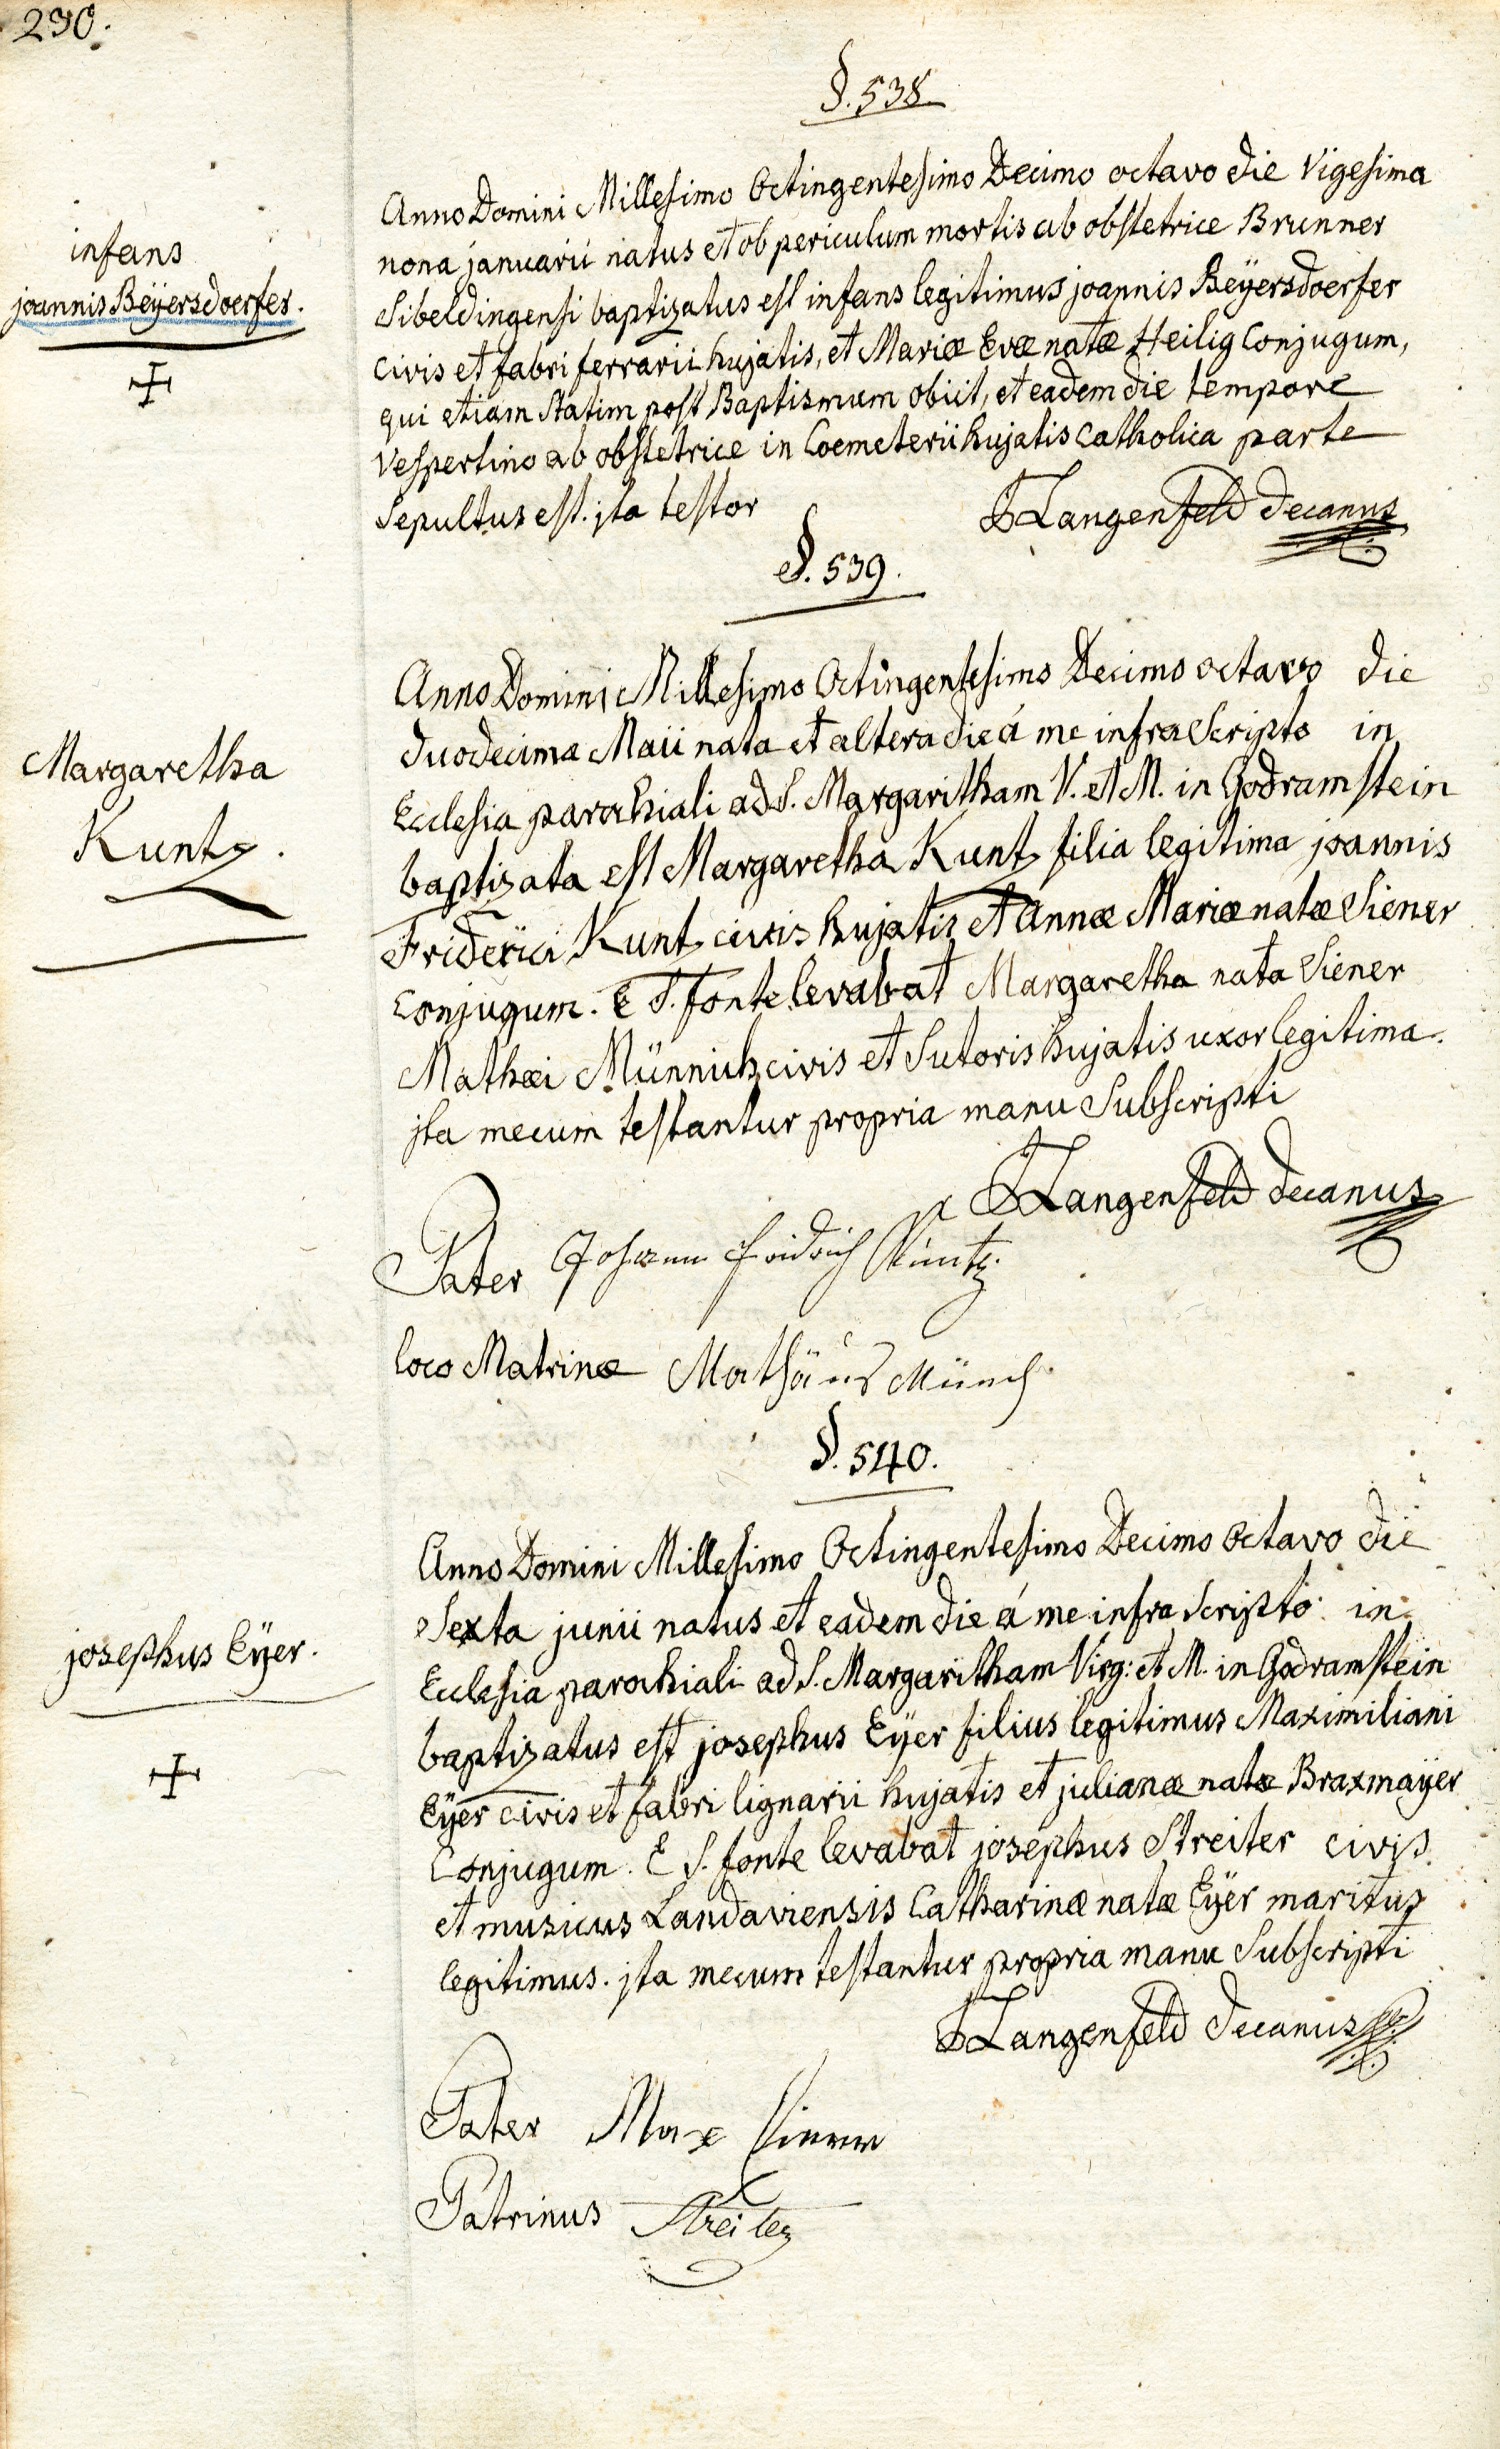 230.
§. 538
infans
joannis Beÿersdoerfer.
Anno Domini Millesimo Octingentesimo Decimo octavo die Vigesima
nona januarii natus et ob periculum mortis ab obstetrice Brunner
Sibeldingensi baptizatus est infans legitimus joannis Beÿersdoerfer
civis et fabri ferrarii hujatis, et Mariæ Evæ natæ Heilig Conjugum,
qui etiam statim post Baptismum obiit, et eadem die tempore
Vespertino ab obstetrice in Coemeterii hujatis catholica parte
Sepultus est. jta testor
Langenfeld Decanus
§. 539.
Margaretha
Kuntz.
Anno Domini Millesimo Octingentesimo Decimo octavo die
duodecima Maii nata et altera die á me infra Scripto in
Ecclesia parochiali ad S. Margaritham V. et M. in Godramstein
baptizata est Margaretha Kuntz filia legitima joannis
Friderici Kuntz civis hujatis et Annæ Mariæ natæ Siener
Conjugum. E S. fonte levabat Margaretha nata Siener
Mathæi Münnich civis et Sutoris hujatis uxor legitima.
jta mecum testantur propria manu Subscripti
Langenfeld Decanus
Pater Johann Fridrich Kuntz
loco Matrinæ Mathäus Münch
§. 540.
josephus Eÿer.
Anno Domini Millesimo Octingentesimo Decimo Octavo die
Sexta junii natus et eadem die á me infra Scripto in
Ecclesia parochiali ad S. Margaritham Virg: et M. in Godramstein
baptizatus est josephus Eÿer filius legitimus Maximiliani
Eÿer civis et fabri lignarii hujatis et julianæ natæ Braxmaÿer
Conjugum. E S. fonte levabat josephus Streiter civis
et musicus Landaviensis Catharinæ natæ Eÿer maritus
legitimus. jta mecum testantur propria manu Subscripti
Langenfeld Decanus
Pater Max
Patrinus Streiter